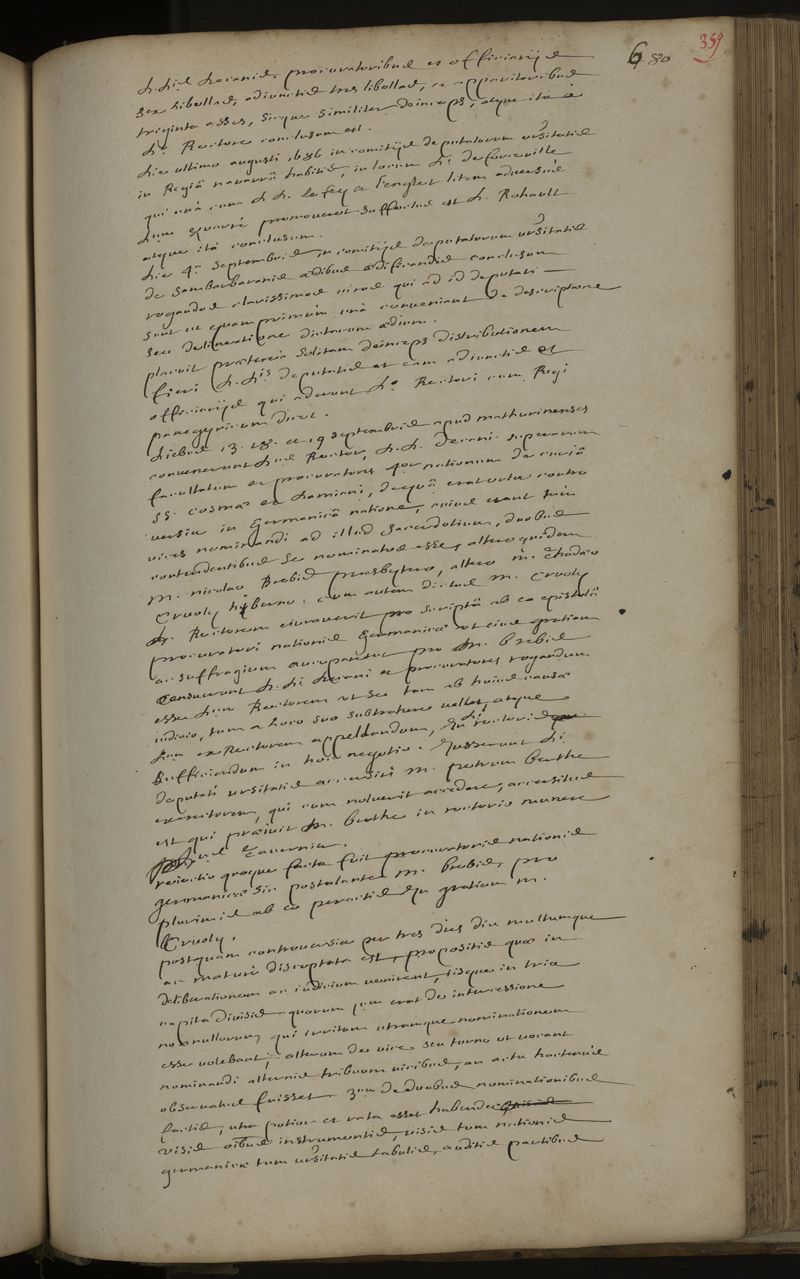 680 359
d.d. decanis, procuratoribus et officiariis
sex libellas, adiunctis tres libellas, ac apparitoribus
triginta asses, sicque similiter deinceps, atque ita a
do. Rectore conclusum est.
Die ultimo augusti 1686 in comitiis deputatorum ursitatis
in Regia navarra habitis, in locum di. de
qui una cum d.d. le fey et l'englet litem adversus
dum promoveret suffectus est d. Rahault
atque ita conclusum.
Die 4a. Septembris in comitiis deputatorum ursitatis
de Sambarbaranis aedibus aedificandis conclusum
rogandos clarissimos viros qui ad id deputati
sunt ut quamprimum una conveniant de descriptione
seu delineatione dictarum aedium.
placuit praeterea solitam deinceps distributionem
fieri d.dis. deputatis et eam adiunctis et
officiariis qui aderunt do. Rectori cum Regi
panegyricum dicet.
Diebus 13. 18. et 19 septembris apud mathurinenses
convenerunt dnus Rector, d.d. decani superiorum
facultatum et procuratores nationum de curia
SS. Cosmae et Damiani, de qua erat orta contro
versia in Germanica natione, cuius erant tum
vices nominandi ad illud sacerdotium, duobus
contendentibus se nominatos esse, altero quidem
M. nicolao Brebis presbytero, altero m. Thadaeo
Cruoly hyberno: cum autem dictus M. Cruoly
dn. Rectorem eiuraverit pro scripta ab eo epistola
procuratori nationis Germanicae ut eius gratiam
ac suffragium aucuparetur pro M. brebis
Censuerunt d.di. decani et procuratores rogandum
esse dnum Rectorem ut se tam ab huius causae
iudicio, tum a loco suo subtrahere vellet, atque
dnum exRectorem appellandum, qui rectoris
sufficiendum in hoc negotio. Iusserunt di.
deputati ursitatis accersiri M. petrum berthe
exrectorem, qui cum noluerit accedere, accersitus
est qui praeivit M. berthe in rectorio munere
tavernier.
reiectio quoque facta fuit procuratoris nationis
germanicae sic postulante M. brebis, pro
plurimis ab eo peractis in gratiam M.
Cruoly.
postquam controversia per tres dies diu multumque
ac mature disceptata est, propositis quae in
deliberationem ac iudicium venirent, iisque in tria
capita divisis quorum 1um erat de intercessione
nonnullorum, qui irritam utramque nominationem
esse volebant; alterum de vice seu turno ut vocant
nominandi alternis tribuum vicibus, an actu hactenus
observatus fuisset. 3um de duabus nominationibus
factis, utra potior et rata esset habenda
visis oibus instrumentis, visis tum nationis
germanicae tum ursitatis tabulis, auditis partibus